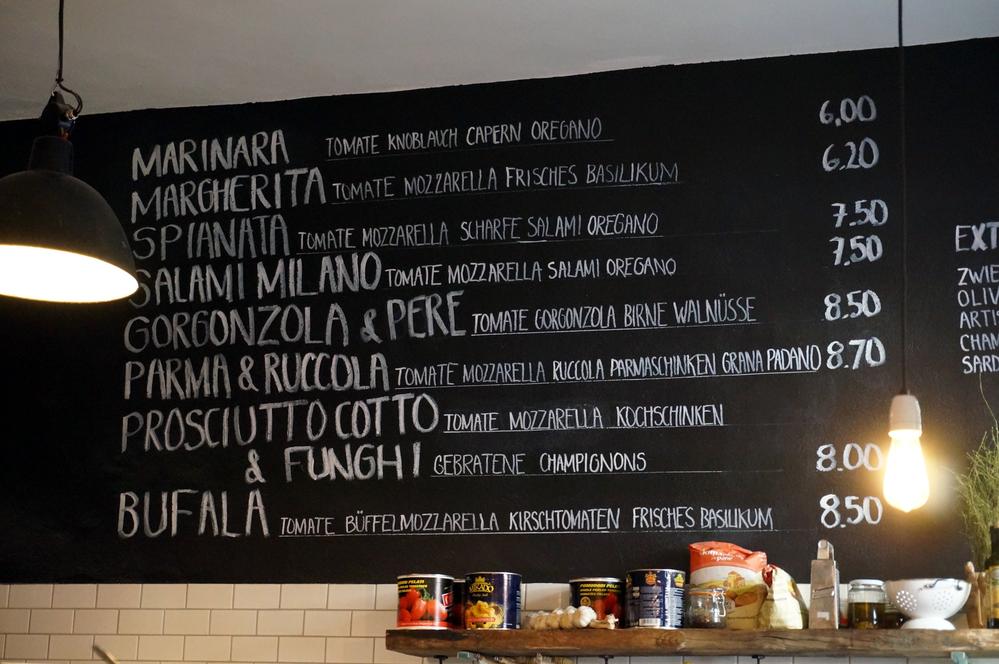 MARINARA TOMATE KNOBLAUCH CAPERN OREGANO 6,00
MARGHERITA TOMATE MOZZARELLA FRISCHES BASILIKUM 6.20
SPIANATA TOMATE MOZZARELLA SCHARFE SALAMI OREGANO 7.50
SALAMI MILANO TOMATE MOZZARELLA SALAMI OREGANO 7.50
GORGONZOLA & PERE TOMATE GORGONZOLA BIRNE WALNÜSSE 8.50
PARMA & RUCCOLA TOMATE MOZZARELLA RUCCOLA PARMASCHINKEN GRANA PADANO 8.70
PROSCIUTTO COTTO TOMATE MOZZARELLA KOCHSCHINKEN
& FUNGHI GEBRATENE CHAMPIGNONS 8.00
BUFALA TOMATE BÜFFELMOZZARELLA KIRSCHTOMATEN FRISCHES BASILIKUM 8.50
EXT
ZWIE
OLIV
ARTI
CHAM
SARD